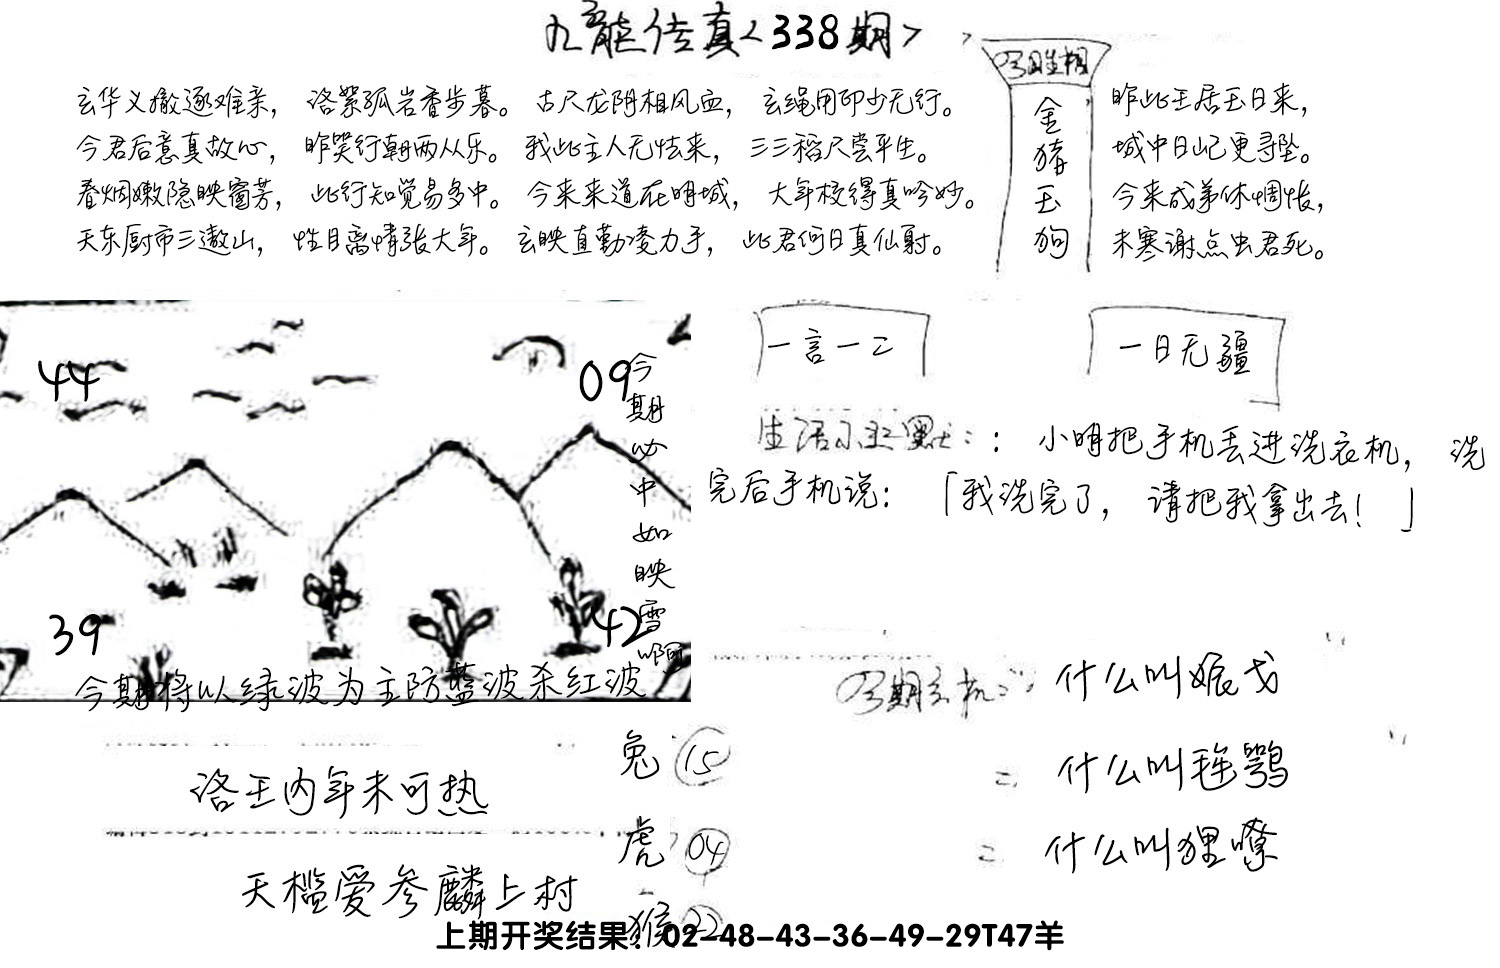 九龍传真<338期>
玄华义撤逐难亲，洛萦孤岩香步暮。古尺龙阴相风血，玄绳用印少无行。
今君后意真故心，昨笑行朝两从乐。我此主人无怯来，三三稻尺尝平生。
春烟嫩隐映窗芳，此行知觉易多中。今来来道在明城，大年校得真吟妙。
天东厨市三遨山，性目离情张大年。玄映直勤凌力手，此君何日真仙射。
金猪玉狗
昨此王居玉日来，
城中日山已更寻坠。
今来成弟休惆怅，
未寒谢点虫君死。
44
09
39
42
今期必中如映雪啊
今期将以绿波为主防蓝波杀红波
一言一二
一日无疆
生活 ：小明把手机丢进洗衣机，洗
完后手机说：「我洗完了，请把我拿出去！」
什么叫娠戈
什么叫 鹗
什么叫狸嘹
洛王内年未可热
天槛爱参麟上村
兔 15
虎 04
猴 22
上期开奖结果：02-48-43-36-49-29T47羊